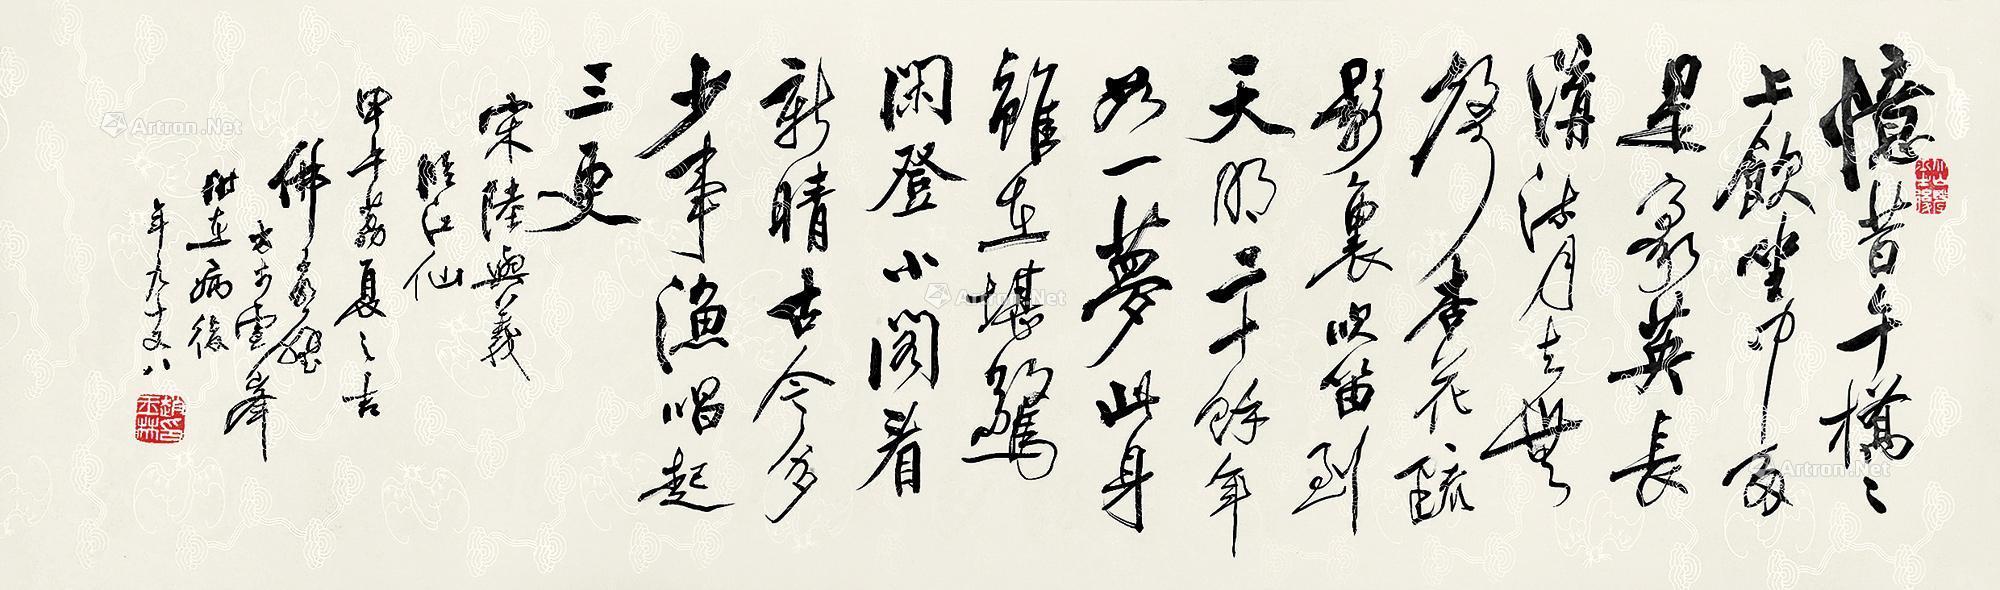 憶昔午橋〻
上飲坐中多
是豪英長
溝流月去無
聲杏花疏
影裏吹笛到
天明二十餘年
如一夢此身
雖在堪驚
閑登小閣看
新晴古今多
少事漁唱起
三更
宋陸與義
臨江仙
甲午荔夏之吉
佛
書於雲峰
時在病後
年九十又八
趙印玉林
Artron.Net
Artron.Net
Artron.Net